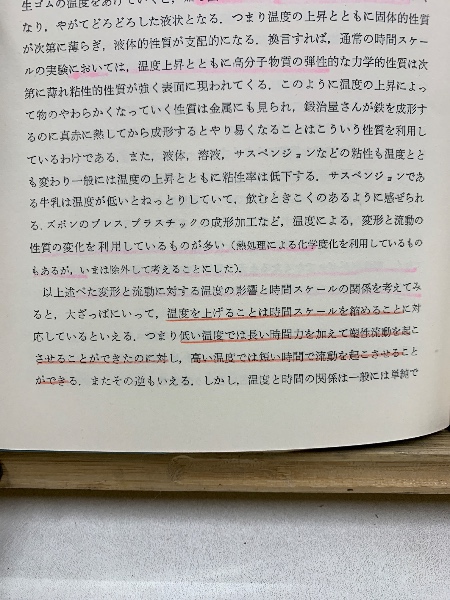 生ゴムの温度をあげていくと，
なり，やがてどろどろした液状となる．つまり温度の上昇とともに固体的性質
が次第に薄らぎ，液体的性質が支配的になる．換言すれば，通常の時間スケー
ルの実験においては，温度上昇とともに高分子物質の弾性的な力学的性質は次
第に薄れ粘性的性質が強く表面に現われてくる．このように温度の上昇によっ
て物のやわらかくなっていく性質は金属にも見られ，鍛治屋さんが鉄を成形す
るのに真赤に熱してから成形するとやり易くなることはこういう性質を利用し
ているわけである．また，液体，溶液，サスペンジョンなどの粘性も温度とと
も変わり一般には温度の上昇とともに粘性率は低下する．サスペンジョンであ
る牛乳は温度が低いとねっとりしていて，飲むときこくのあるように感ぜられ
る．ズボンのプレス，プラスチックの成形加工など，温度による，変形と流動の
性質の変化を利用しているものが多い（熱処理による化学変化を利用しているもの
もあるが，いまは除外して考えることにした）．
以上述べた変形と流動に対する温度の影響と時間スケールの関係を考えてみ
ると，大ざっぱにいって，温度を上げることは時間スケールを縮めることに対
応しているといえる．つまり低い温度では長い時間力を加えて塑性流動を起こ
させることができたのに対し，高い温度では短い時間で流動を起こさせること
ができる．またその逆もいえる．しかし，温度と時間の関係は一般には単純で